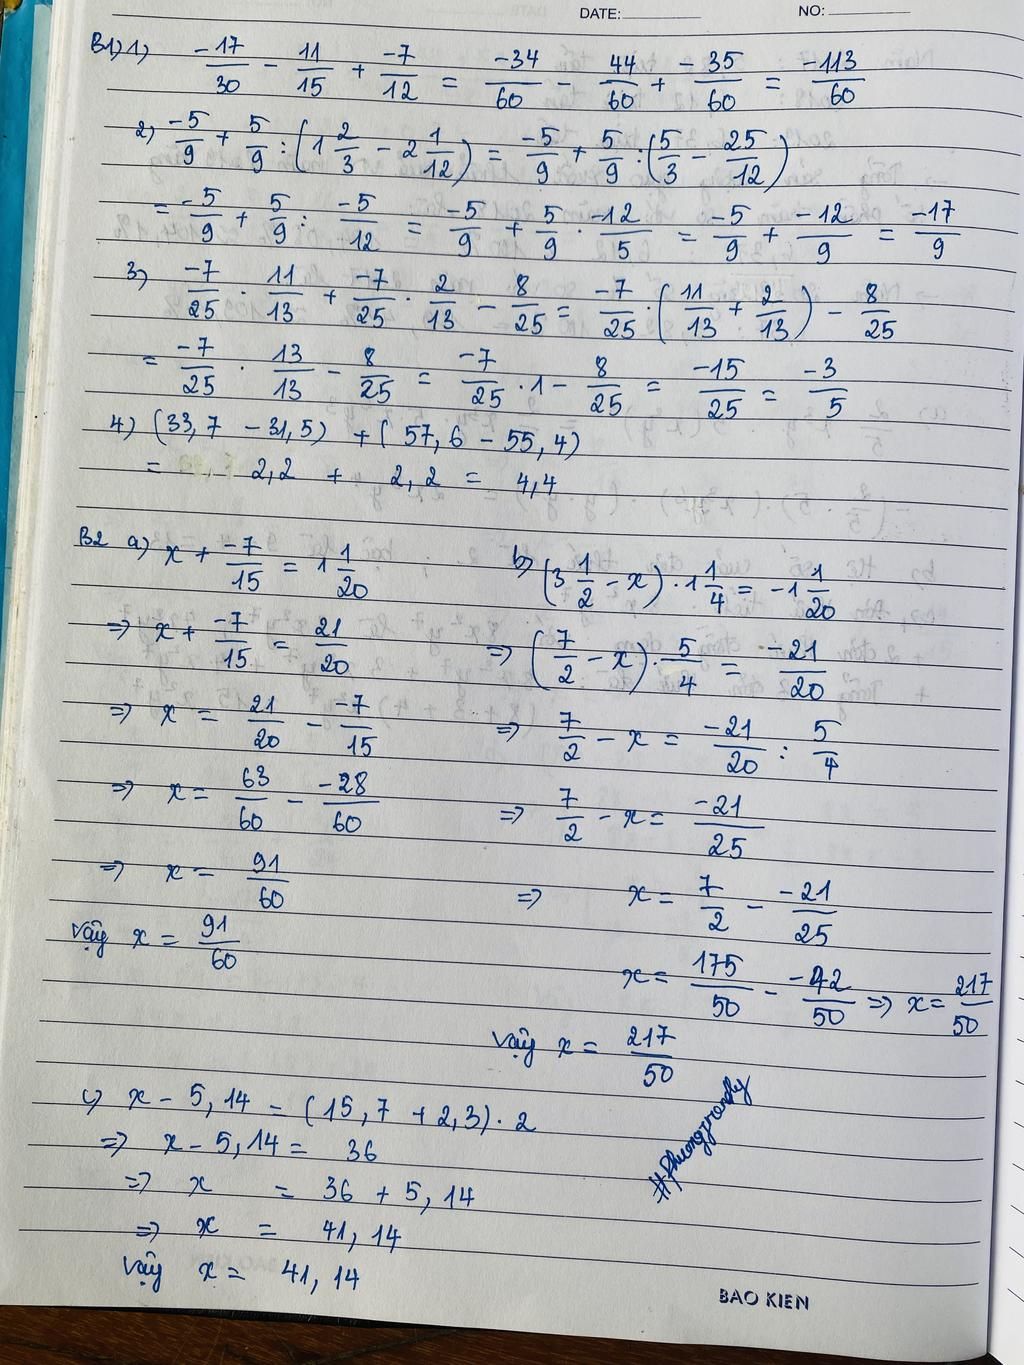 DATE: NO:
B1) 1) -17/30 - 11/15 + -7/12 = -34/60 - 44/60 + -35/60 = -113/60
2) -5/9 + 5/9 : (1 2/3 - 2 1/12) = -5/9 + 5/9 : (5/3 - 25/12)
= -5/9 + 5/9 : -5/12 = -5/9 + 5/9 · -12/5 = -5/9 + -12/9 = -17/9
3) -7/25 · 11/13 + -7/25 · 2/13 - 8/25 = -7/25 · (11/13 + 2/13) - 8/25
= -7/25 · 13/13 - 8/25 = -7/25 · 1 - 8/25 = -15/25 = -3/5
4) (33,7 - 31,5) + (57,6 - 55,4)
= 2,2 + 2,2 = 4,4
B2 a) x + -7/15 = 1 1/20
=> x + -7/15 = 21/20
=> x = 21/20 - -7/15
=> x = 63/60 - -28/60
=> x = 91/60
Vậy x = 91/60
b) (3 1/2 - x) · 1 1/4 = -1 1/20
=> (7/2 - x) · 5/4 = -21/20
=> 7/2 - x = -21/20 : 5/4
=> 7/2 - x = -21/25
=> x = 7/2 - -21/25
x = 175/50 - -42/50 => x = 217/50
Vậy x = 217/50
c) x - 5,14 = (15,7 + 2,3) · 2
=> x - 5,14 = 36
=> x = 36 + 5,14
=> x = 41,14
Vậy x = 41,14
BAO KIEN